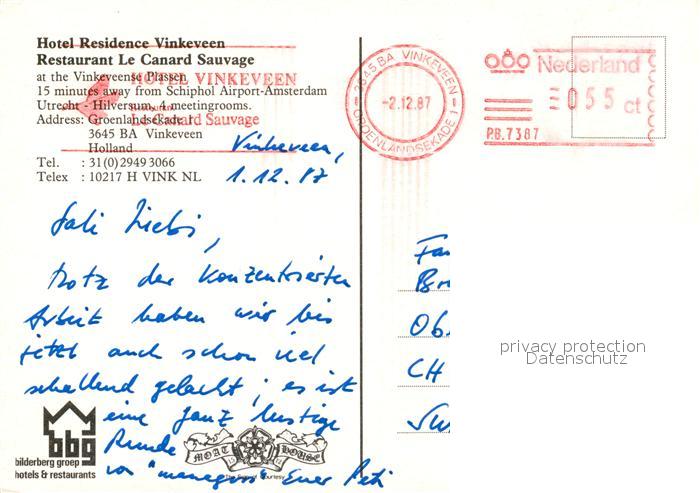 Hotel Residence Vinkeveen
Restaurant Le Canard Sauvage
at the Vinkeveense Plassen
HOTEL VINKEVEEN
15 minutes away from Schiphol Airport-Amsterdam
Utrecht - Hilversum, 4 meetingrooms.
Restaurant
Le Canard Sauvage
Address: Groenlandsekade 1
3645 BA Vinkeveen
Holland
Tel. : 31(0)2949 3066
Telex : 10217 H VINK NL
3645 BA VINKEVEEN
-2.12.87
GROENLANDSEKADE 1
Nederland
055 ct
P.B. 7387
Vinkeveen,
1.12.87
Sali Liebi,
trotz der konzentrierten
Arbeit haben wir bis
jetzt auch schon viel
schallend gelacht; es ist
eine ganz lustige
Runde
von "managern" Euer
Fam
Ob.
CH
privacy protection
Datenschutz
bbg
bilderberg groep
hotels & restaurants
MOAT HOUSE